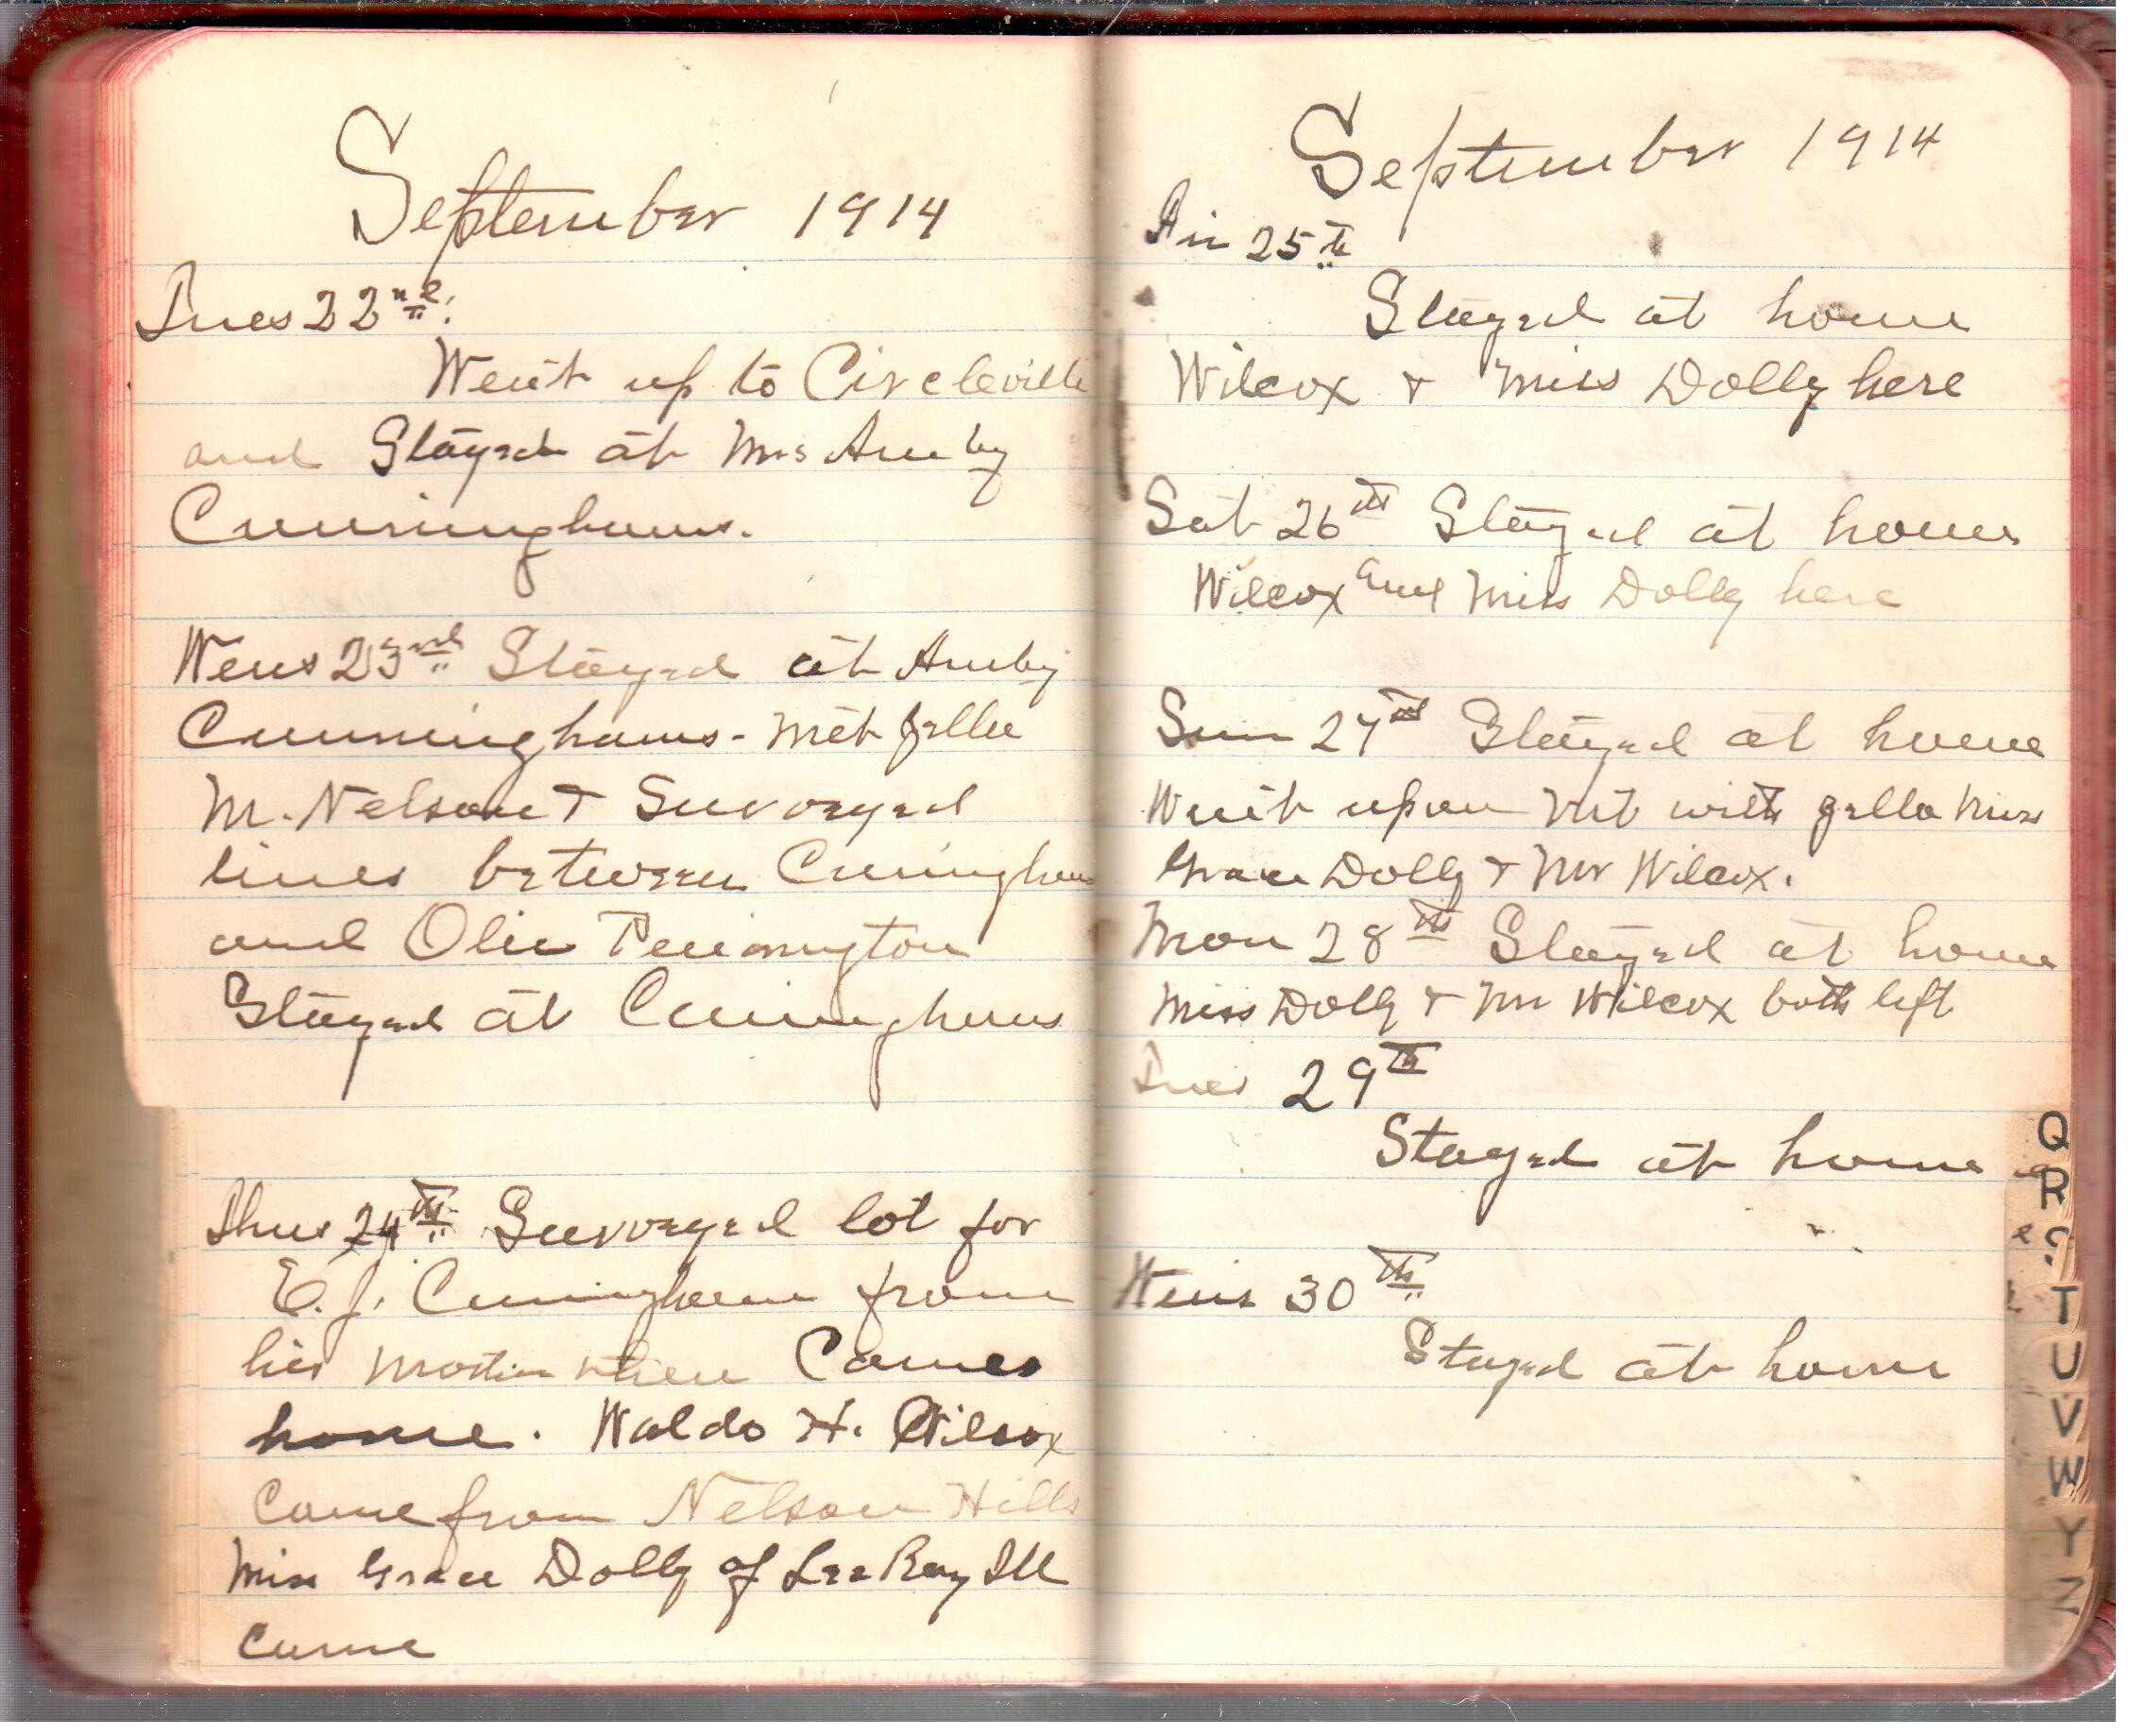 September 1914
Tues 22nd.
Went up to Circleville
and Stayed at Mrs Amby
Cunninghams.
Wens 23rd Stayed at Amby
Cunninghams - Met
M. Nelson & Survayed
lines between Cuningham
and Olie Penington
Stayed at Cuninghams
Thus 24th Survayed lot for
E. J. Cuningham from
his Mother then Came
home. Waldo H. Wilcox
Came from Nelson Hills
Miss Grace Dolly of Lee Ray Ill
Came
September 1914
Fri 25th
Stayed at home
Wilcox & Miss Dolly here
Sat 26th Stayed at home
Wilcox and Miss Dolly here
Sun 27th Stayed at home
Went upon with Miss
Grace Dolly & Mr Wilcox.
Mon 28th Stayed at home
Miss Dolly & Mr Wilcox both left
Tues 29th
Stayed at home
Wens 30th
Stayed at home
Q
R
S
T
U
V
W
Y
Z